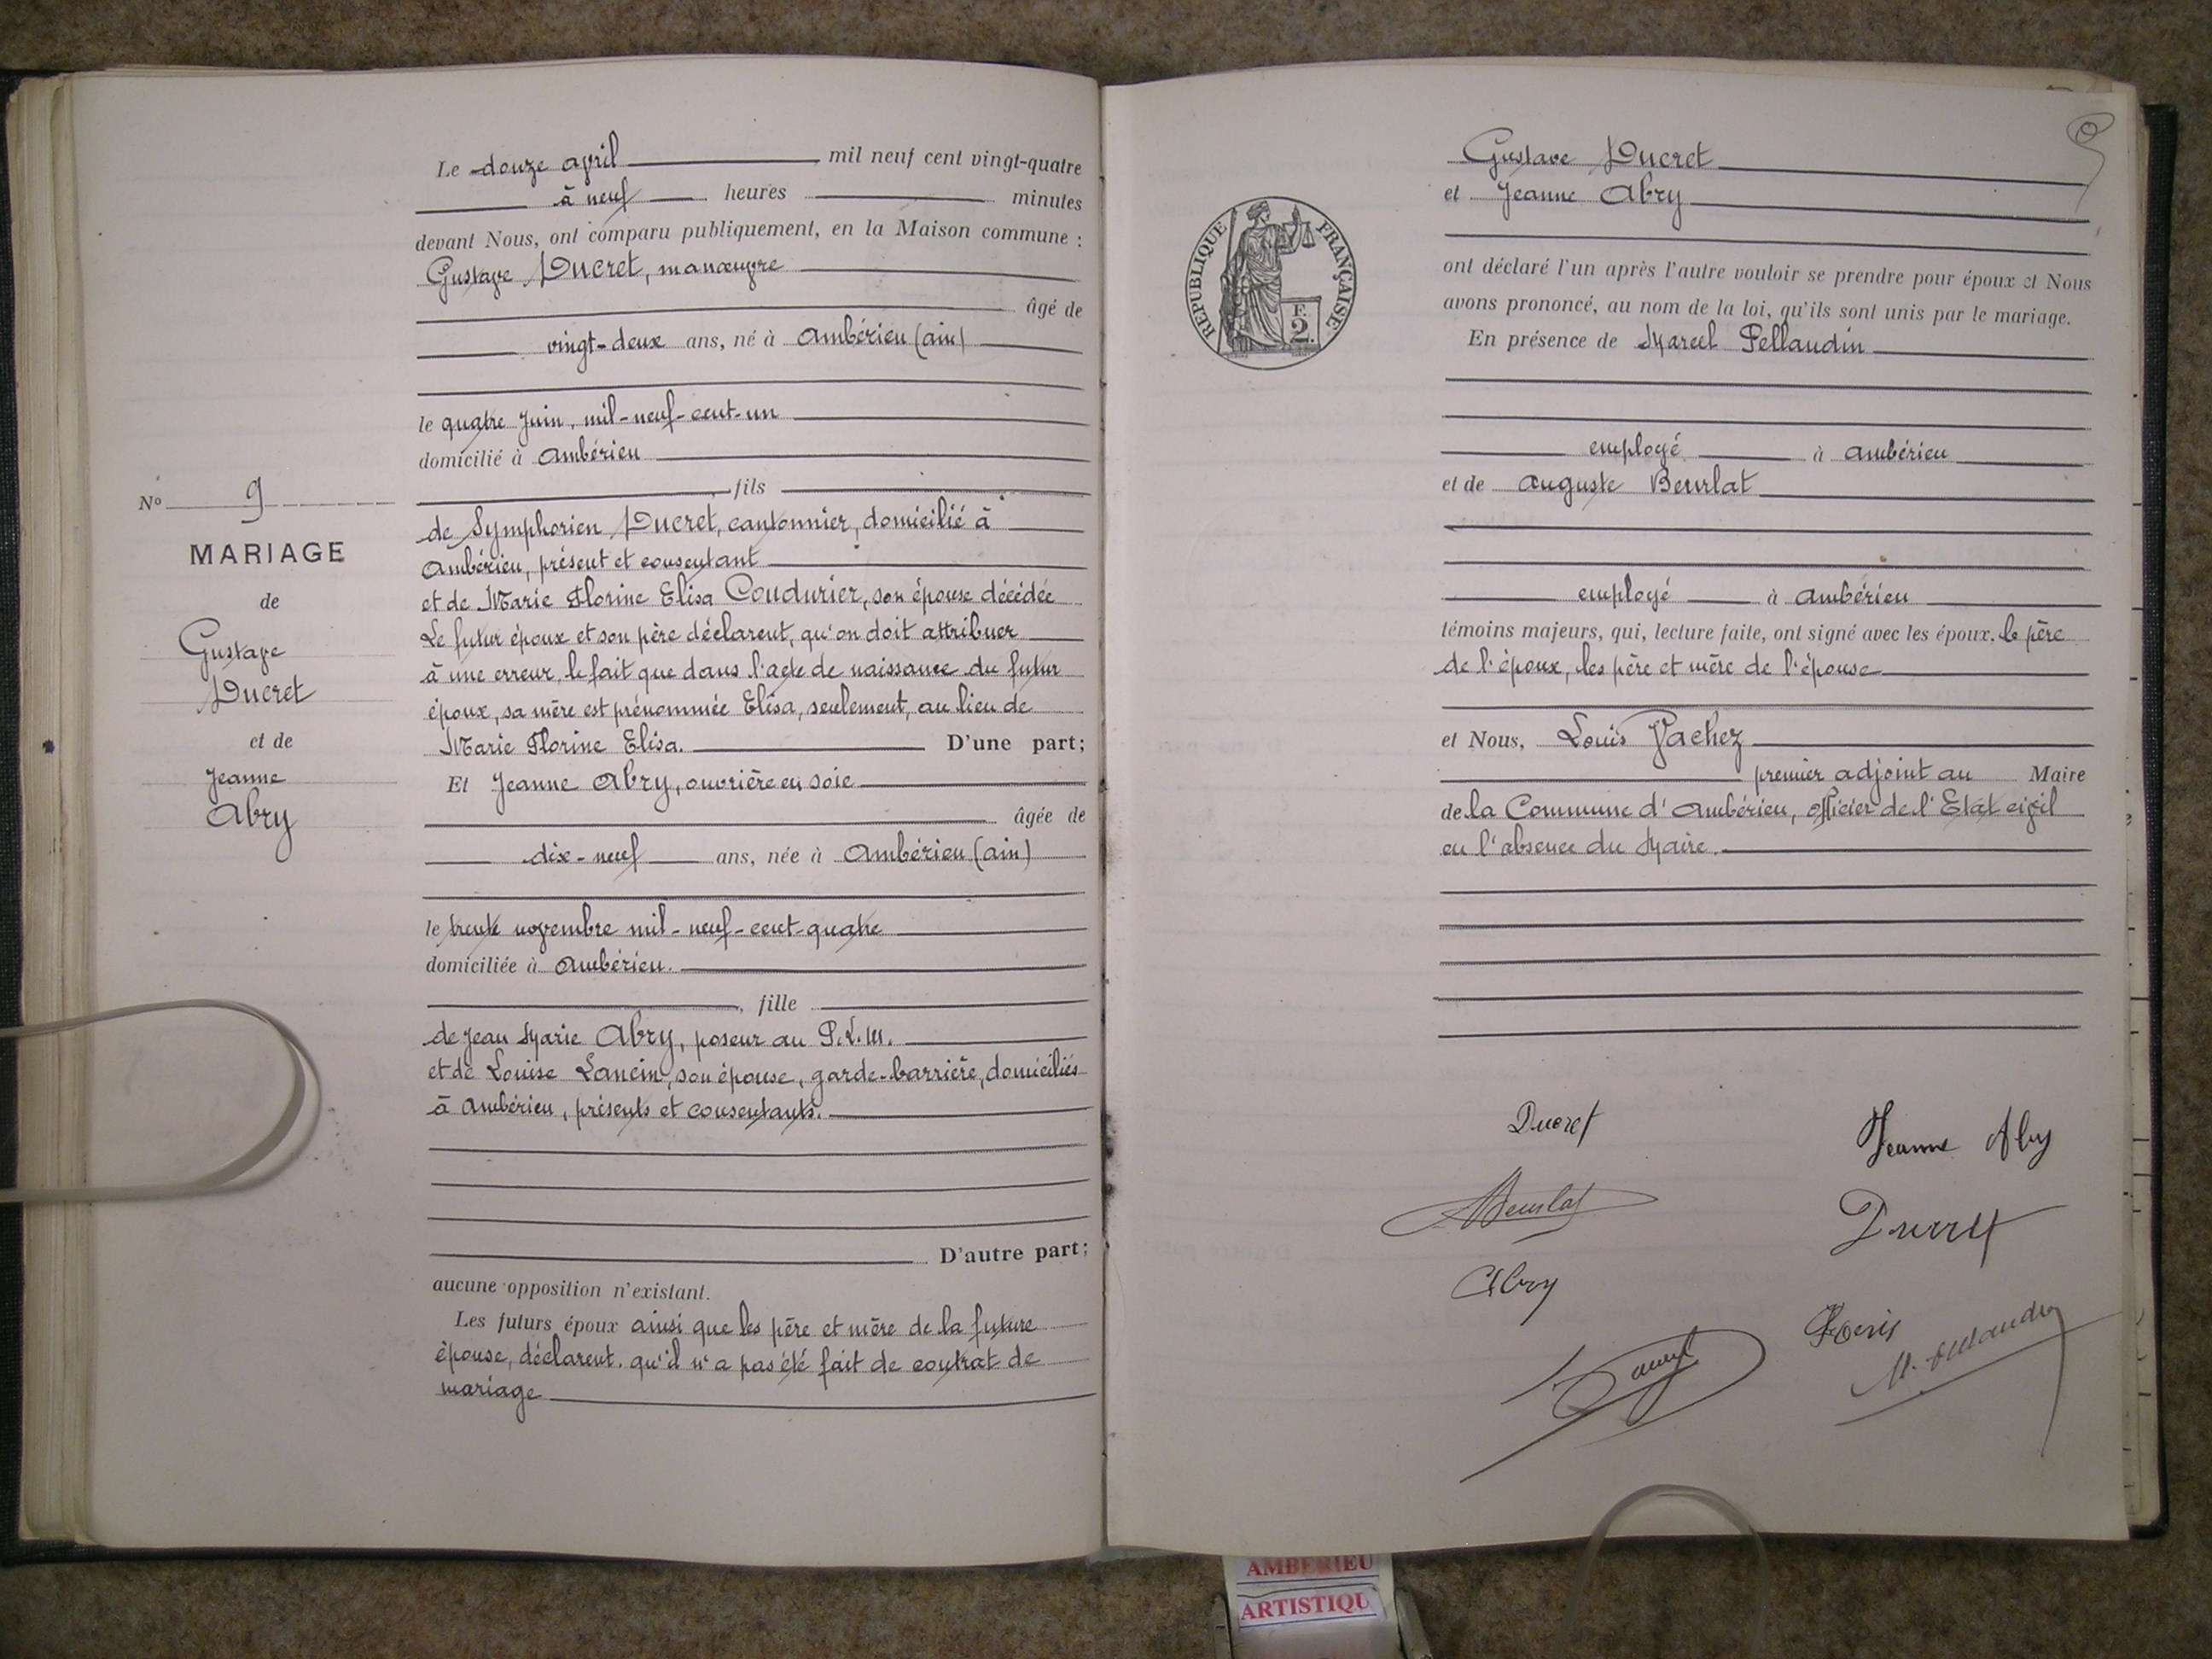 Le douze avril mil neuf cent vingt-quatre
à neuf heures minutes
devant Nous, ont comparu publiquement, en la Maison commune :
Gustave Ducret, manœuvre
âgé de
vingt-deux ans, né à Ambérieu (ain)
le quatre Juin, mil-neuf-cent-un
domicilié à Ambérieu
fils
de Symphorien Ducret, cantonnier, domicilié à
Ambérieu, présent et consentant
et de Marie Florine Elisa Coudurier, son épouse décédée
Le futur époux et son père déclarent, qu'on doit attribuer
à une erreur, le fait que dans l'acte de naissance du futur
époux, sa mère est prénommée Elisa, seulement, au lieu de
Marie Florine Elisa. D'une part;
Et Jeanne Abry, ouvrière en soie
âgée de
dix-neuf ans, née à Ambérieu (ain)
le trente novembre mil-neuf-cent-quatre
domiciliée à Ambérieu.
, fille
de Jean Marie Abry, poseur au P.L.M.
et de Louise Lancin, son épouse, garde-barrière, domiciliés
à Ambérieu, présents et consentants.
D'autre part;
aucune opposition n'existant.
Les futurs époux ainsi que les père et mère de la future
épouse, déclarent. qu'il n'a pas été fait de contrat de
mariage
No 9
MARIAGE
de
Gustave
Ducret
et de
Jeanne
Abry
Gustave Ducret
et Jeanne Abry
ont déclaré l'un après l'autre vouloir se prendre pour époux et Nous
avons prononcé, au nom de la loi, qu'ils sont unis par le mariage.
En présence de Marcel Pellaudin
employé à Ambérieu
et de Auguste Beurlat
employé à Ambérieu
témoins majeurs, qui, lecture faite, ont signé avec les époux, le père
de l'époux, les père et mère de l'épouse
et Nous, Louis Vachez
premier adjoint au Maire
de la Commune d'Ambérieu, officier de l'Etat civil
en l'absence du Maire.
RÉPUBLIQUE FRANÇAISE
F.
2.
Ducret
Jeanne Abry
Beurlat
Ducret
Abry
AMBERIEU
ARTISTIQU